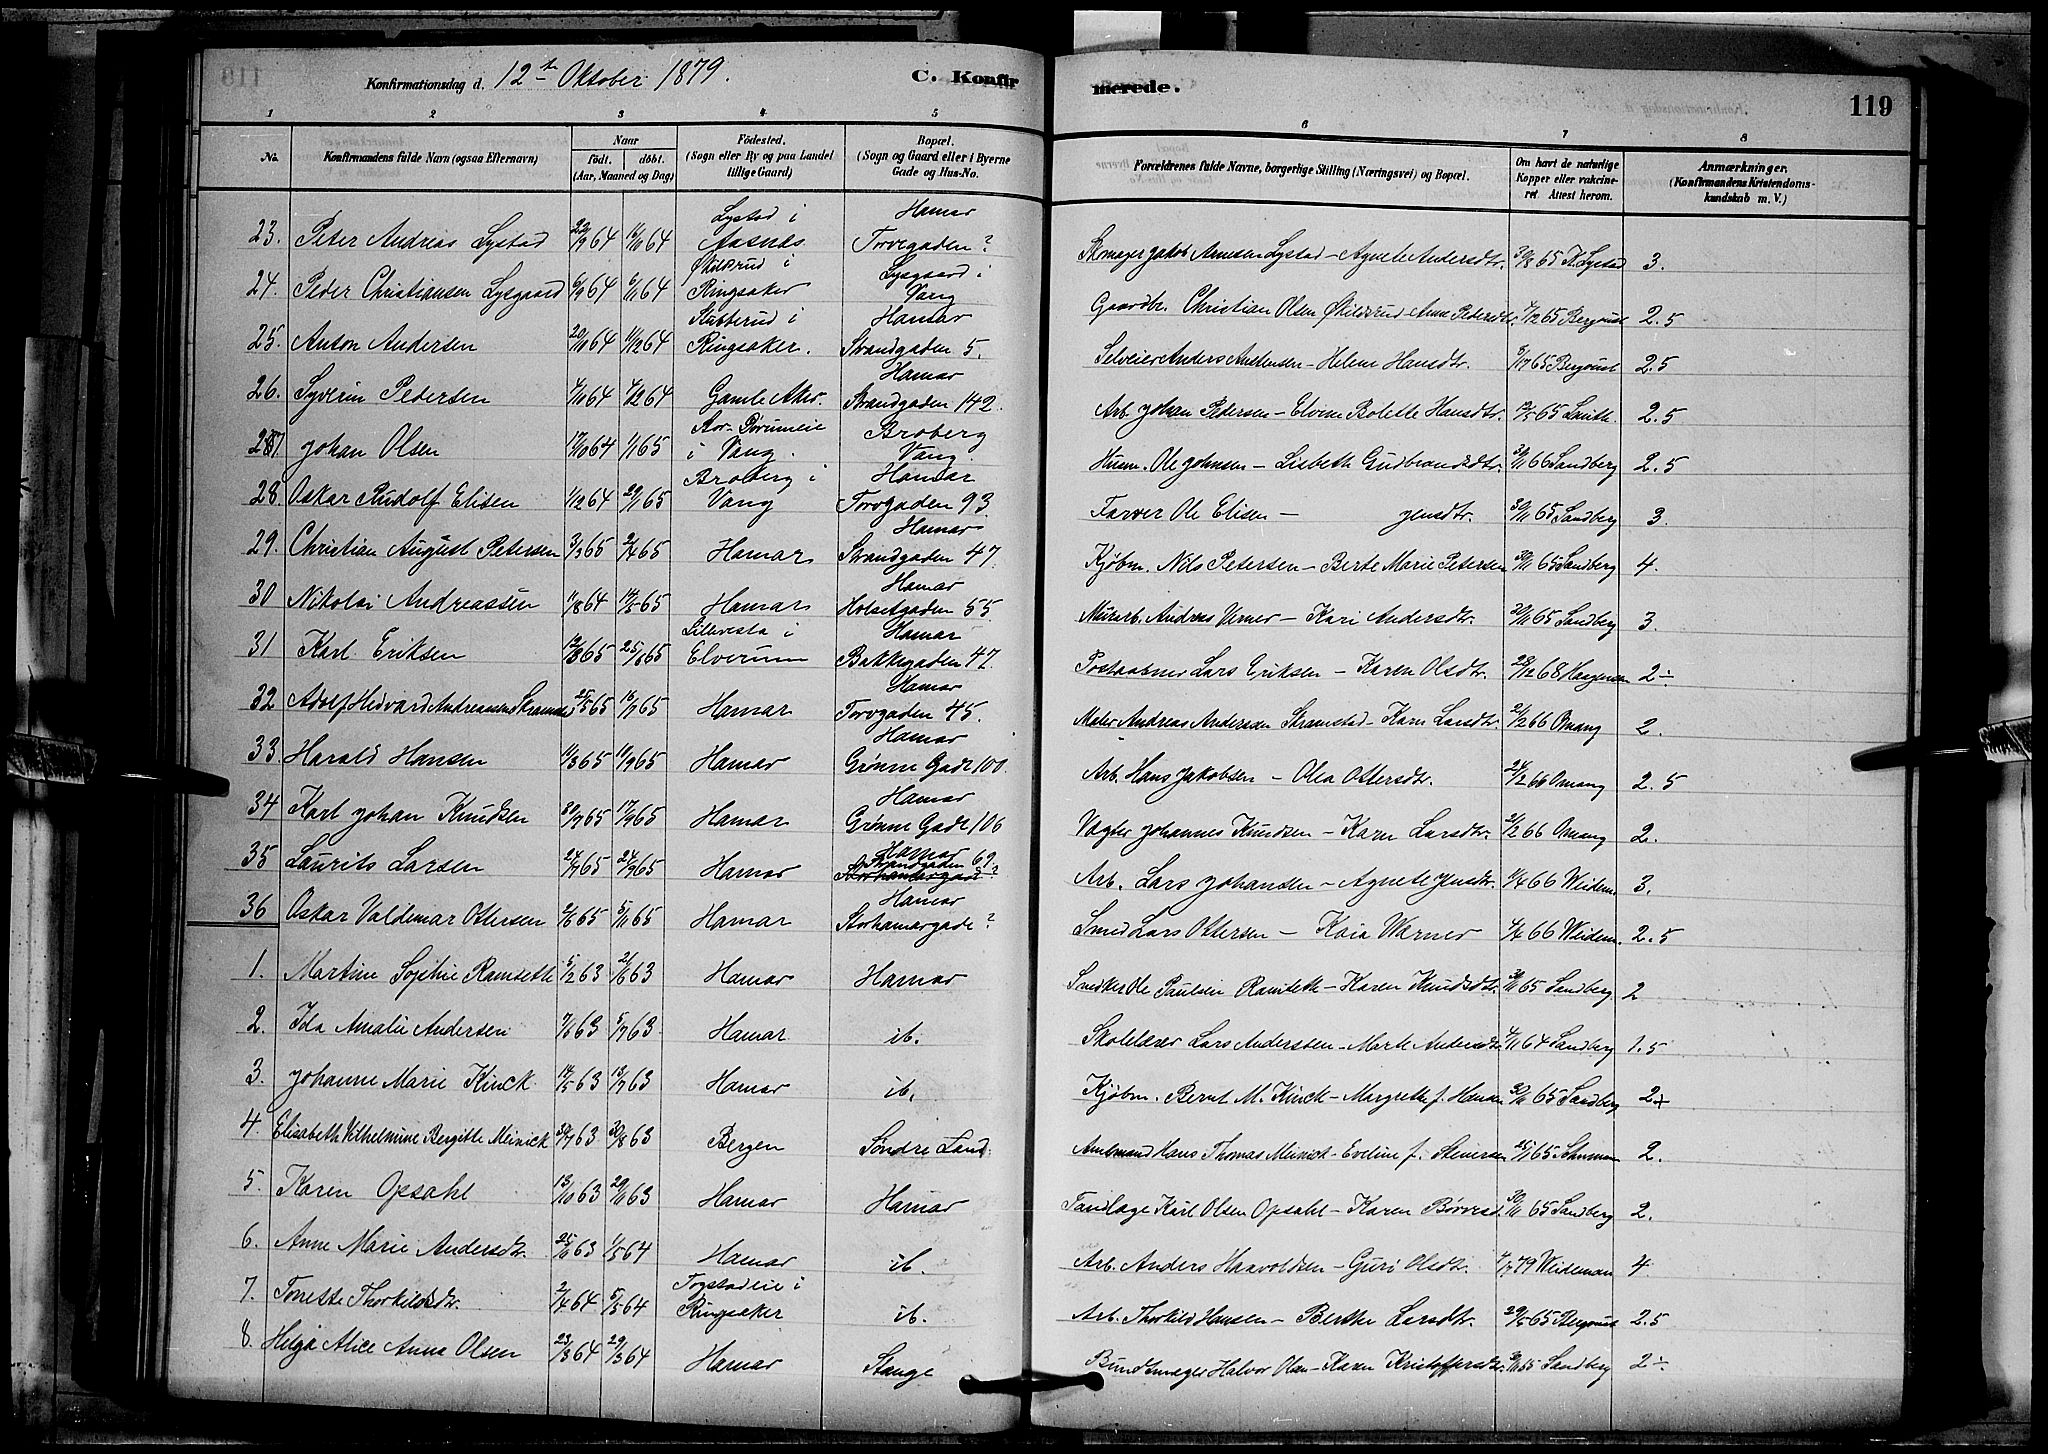 Konfirmationsdag d. 12te Oktober 1879. C. Konfirmerede. 119
1 2 3 4 5 6 7 8
No. Konfirmandens fulde Navn (ogsaa Efternavn) Naar født. døbt. (Aar, Maaned og Dag) Fødested. (Sogn eller By og paa Landet tillige Gaard) Bopæl. (Sogn og Gaard eller i Byerne Gade og Hus-No. Forældrenes fulde Navne, borgerlige Stilling (Næringsvei) og Bopæl. Om havt de naturlige Kopper eller vakcineret Attest herom. Anmærkninger. (Konfirmandens Kristendomskundskab m. V.)
23. Peter Andreas Lystad 22/9 64 16/10 64 Lystad i Aasnes Hamar Torvegaden ? Skomager Jakob Arnesen Lystad - Agnete Andersdtr. 65 Lystad 3.
24. Peder Christiansen Lysgaard 64 64 Økilsrud i Ringsaker Lysgaard i Vang Gaardbr. Christian Olsen Økilsrud Anne Pedersdtr. 65 Bergqust 2.5
25. Anton Andersen 20/10 64 11/12 64 Stubberud i Ringsaker. Hamar Strandgaden 5. Selveier Anders Arnesen - Helene Hansdtr. 65 Bergqust 2.5
26. Syverin Pedersen 64 64 Gamle Aker. Hamar Strandgaden 142. Arb. Johan Pedersen - Elvine Bolette Hansdtr. 65 2.5
27. Johan Olsen 17/10 64 1/1 65 i Vang. Broberg Vang. Husm. Ole Johnsen - Lisbeth Gudbrandsdtr. 30/11 66 Sandberg 2.5
28. Oskar Rudolf Elisen 1/12 64 29/1 65 Broberg i Vang Hamar Torvgaden 93. Farver Ole Elisen - Jensdtr. 30/11 65 Sandberg 3.
29. Christian August Petersen 3/3 65 2/4 65 Hamar Hamar Strandgaden 47. Kjøbm. Nils Petersen - Berte Marie Petersen 30/11 65 Sandberg 4.
30 Nikolai Andreassen 11/8 64 14/5 65 Hamar Hamar Holsetgaden 55. Murarb. Andreas Verner - Kari Andersdtr. 30/11 65 Sandberg 3.
31 Karl Eriksen 65 65 i Elverum Hamar Bakkegaden 47. Postaabner Lars Eriksen - Karen Olsdtr. 28/12 68 Haagensen 2÷
32 Adolf Hedvard Andreassen 25/5 65 16/7 65 Hamar Hamar Torvgaden 45. Maler Andreas Andersen Stramstad - Karn Larsdtr. 21/2 66 Omang 2.
33. Harald Hansen 11/3 65 11/9 65 Hamar Hamar Grønne Gade 100. Arb. Hans Jakobsen - Olea Ottersdtr. 66 Omang 2.5
34 Karl Johan Knudsen 30/7 65 17/9 65 Hamar Hamar Grønne Gade 106 Vagter Johannes Knudsen - Karn Larsdtr. 66 Omang 2.
35 Laurits Larsen 24/7 65 24/9 65 Hamar Hamar Strandgaden 69. Arb. Lars Johansen - Agnete Jensdtr. 66 Weidem. 3.
36 Oskar Valdemar Ottersen 65 5/11 65 Hamar Hamar Storhamargade ? Smed Lars Ottersen - Kaia Warner 66 Weidem. 2.5
1. Martine Sophie Ramseth 5/2 63 21/6 63 Hamar Hamar Snedker Ole Paulsen Ramseth - Karen Knudsdtr. 30/11 65 Sandberg 2
2. Ida Amalie Andersen 63 5/7 63 Hamar. ib. Skolelærer Lars Andersen - Marte Andersdtr. 64 Sandberg 1.5
3. Johanne Marie Kinck 14/5 63 13/7 63 Hamar ib. Kjøbm. Bernt M. Kinck - Margrethe f. Hansen 30/11 65 Sandberg 2
4. Elisabeth Vilhelmine Bergitte Meinick 30/7 63 30/8 63 Bergen Søndre Land. Amtmand Hans Thomas Meinich - Eveline f. 65 2.
5. Karen Opsahl 13/10 63 29/11 63 Hamar Hamar Tandlæge Karl Olsen Opsahl - Karen 30/11 65 Sandberg 2.
6. Anne Marie Andersdtr. 63 1/5 64 Hamar ib. Arb. Anders Haavoldsen - Guri Olsdtr. 79 Weideman 4.
7. Tonette Thorkildsdtr. 2/4 64 5/5 64 Togstadeie i Ringsaker ib. Arb. Thorkild Hansen - Berthe Larsdtr. 65 Bergqust 2.5
8. Helga Alice Anna Olsen 23/3 64 29/3 64 Hamar Stange Bundtmager Halvor Olsen - Karen Kristoffersdtr. 65 Sandberg 2÷